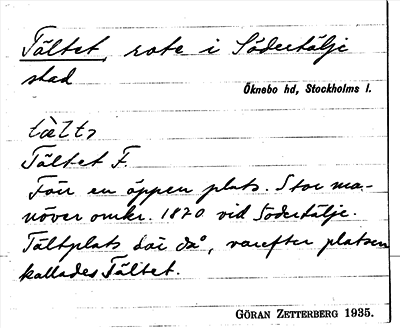 Tältet, rote i Södertälje
stad
Öknebo hd, Stockholms l.
tältə
Tältet F.
Förr en öppen plats. Stor ma-
növer omkr. 1870 vid Södertälje.
Tältplats där då, varefter platsen
kallades Tältet.
GÖRAN ZETTERBERG 1935.